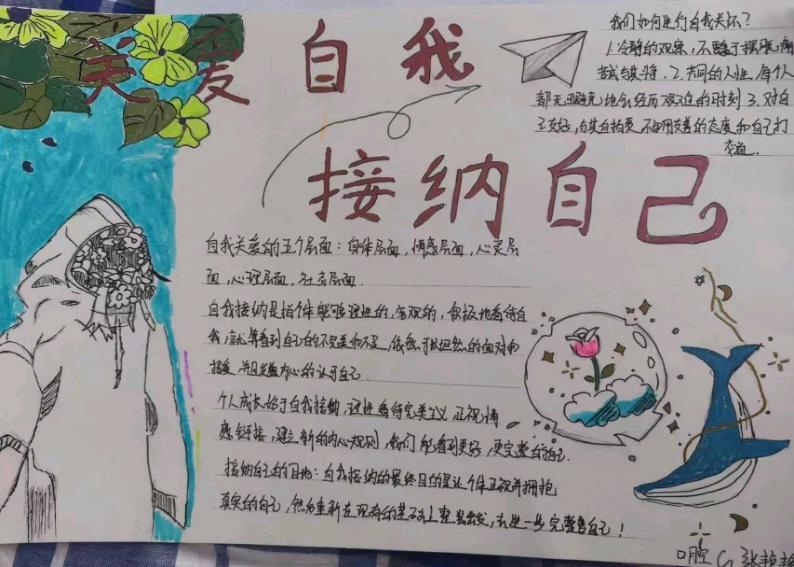 关爱自我
接纳自己
我们如何进行自我关怀？
1.冷静的观察，不
2.共同的人性，每个人
都无可避免地会经历艰难的时刻 3.对自
己友好，与其自
不如用友善的态度和自己打
交道.
自我关爱的五个层面：身体层面，情感层面，心灵层
面，心理层面，社交层面.
自我接纳是指个体能够理性的，客观的，积极地看待自
我，就算看到自己的不完美和不足，依然可以坦然的面对和
接受，并且 内心的认可自己.
个人成长始于自我接纳，理性看待完美主义，正视情
感链接，建立新的内心规则，我们能看到更好，更完整的自己.
接纳自己的目地：自我接纳的最终目的是让个体正视并拥抱
真实的自己，然后重新在现有的基石上整装出发，去进一步完善自己！
口腔